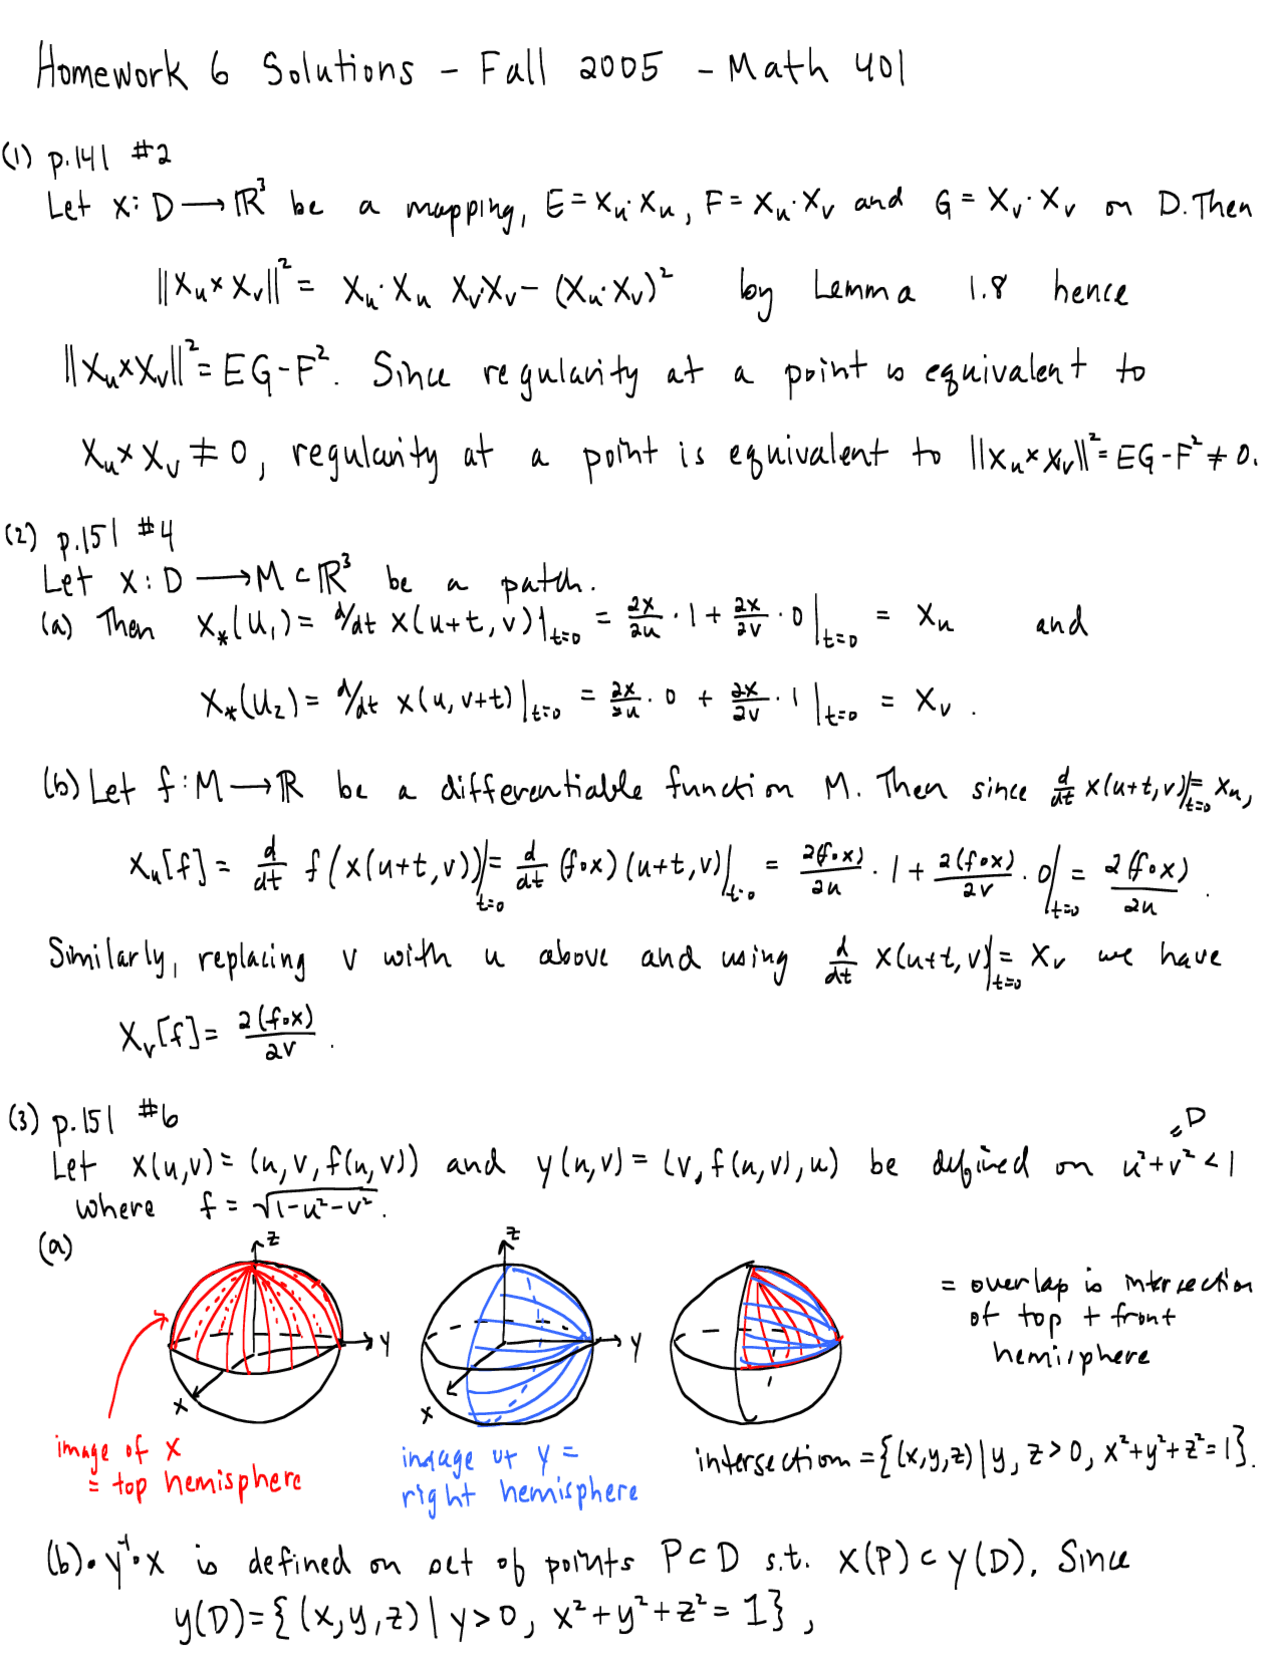 Homework 6 Solutions - Fall 2005 - Math 401
(1) p.141 #2
Let x: D → ℝ³ be a mapping, E = Xu·Xu, F = Xu·Xv and G = Xv·Xv on D. Then
||Xu × Xv||² = Xu·Xu Xv·Xv - (Xu·Xv)² by Lemma 1.8 hence
||Xu×Xv||² = EG-F². Since regularity at a point is equivalent to
Xu × Xv ≠ 0, regularity at a point is equivalent to ||Xu×Xv||² = EG-F² ≠ 0.
(2) p.151 #4
Let x: D → M ⊂ ℝ³ be a patch.
(a) Then X*(U₁) = d/dt x(u+t, v)|t=0 = ∂x/∂u · 1 + ∂x/∂v · 0 |t=0 = Xu and
X*(U₂) = d/dt x(u, v+t)|t=0 = ∂x/∂u · 0 + ∂x/∂v · 1 |t=0 = Xv.
(b) Let f: M → ℝ be a differentiable function M. Then since d/dt x(u+t, v)|t=0 = Xu,
Xu[f] = d/dt f(x(u+t, v))|t=0 = d/dt (f∘x)(u+t, v)|t=0 = ∂(f∘x)/∂u · 1 + ∂(f∘x)/∂v · 0|t=0 = ∂(f∘x)/∂u.
Similarly, replacing v with u above and using d/dt x(u+t, v)|t=0 = Xv we have
Xv[f] = ∂(f∘x)/∂v.
(3) p.151 #6
Let x(u,v) = (u, v, f(u,v)) and y(u,v) = (v, f(u,v), u) be defined on u²+v² < 1
= D
where f = √(1-u²-v²).
(a)
z
y
x
z
y
x
= overlap is intersection
of top + front
hemisphere
image of x
= top hemisphere
image of y =
right hemisphere
intersection = {(x,y,z) | y, z > 0, x²+y²+z² = 1}.
(b) • y⁻¹∘x is defined on set of points P ⊂ D s.t. x(P) ⊂ y(D). Since
y(D) = {(x,y,z) | y > 0, x²+y²+z² = 1},